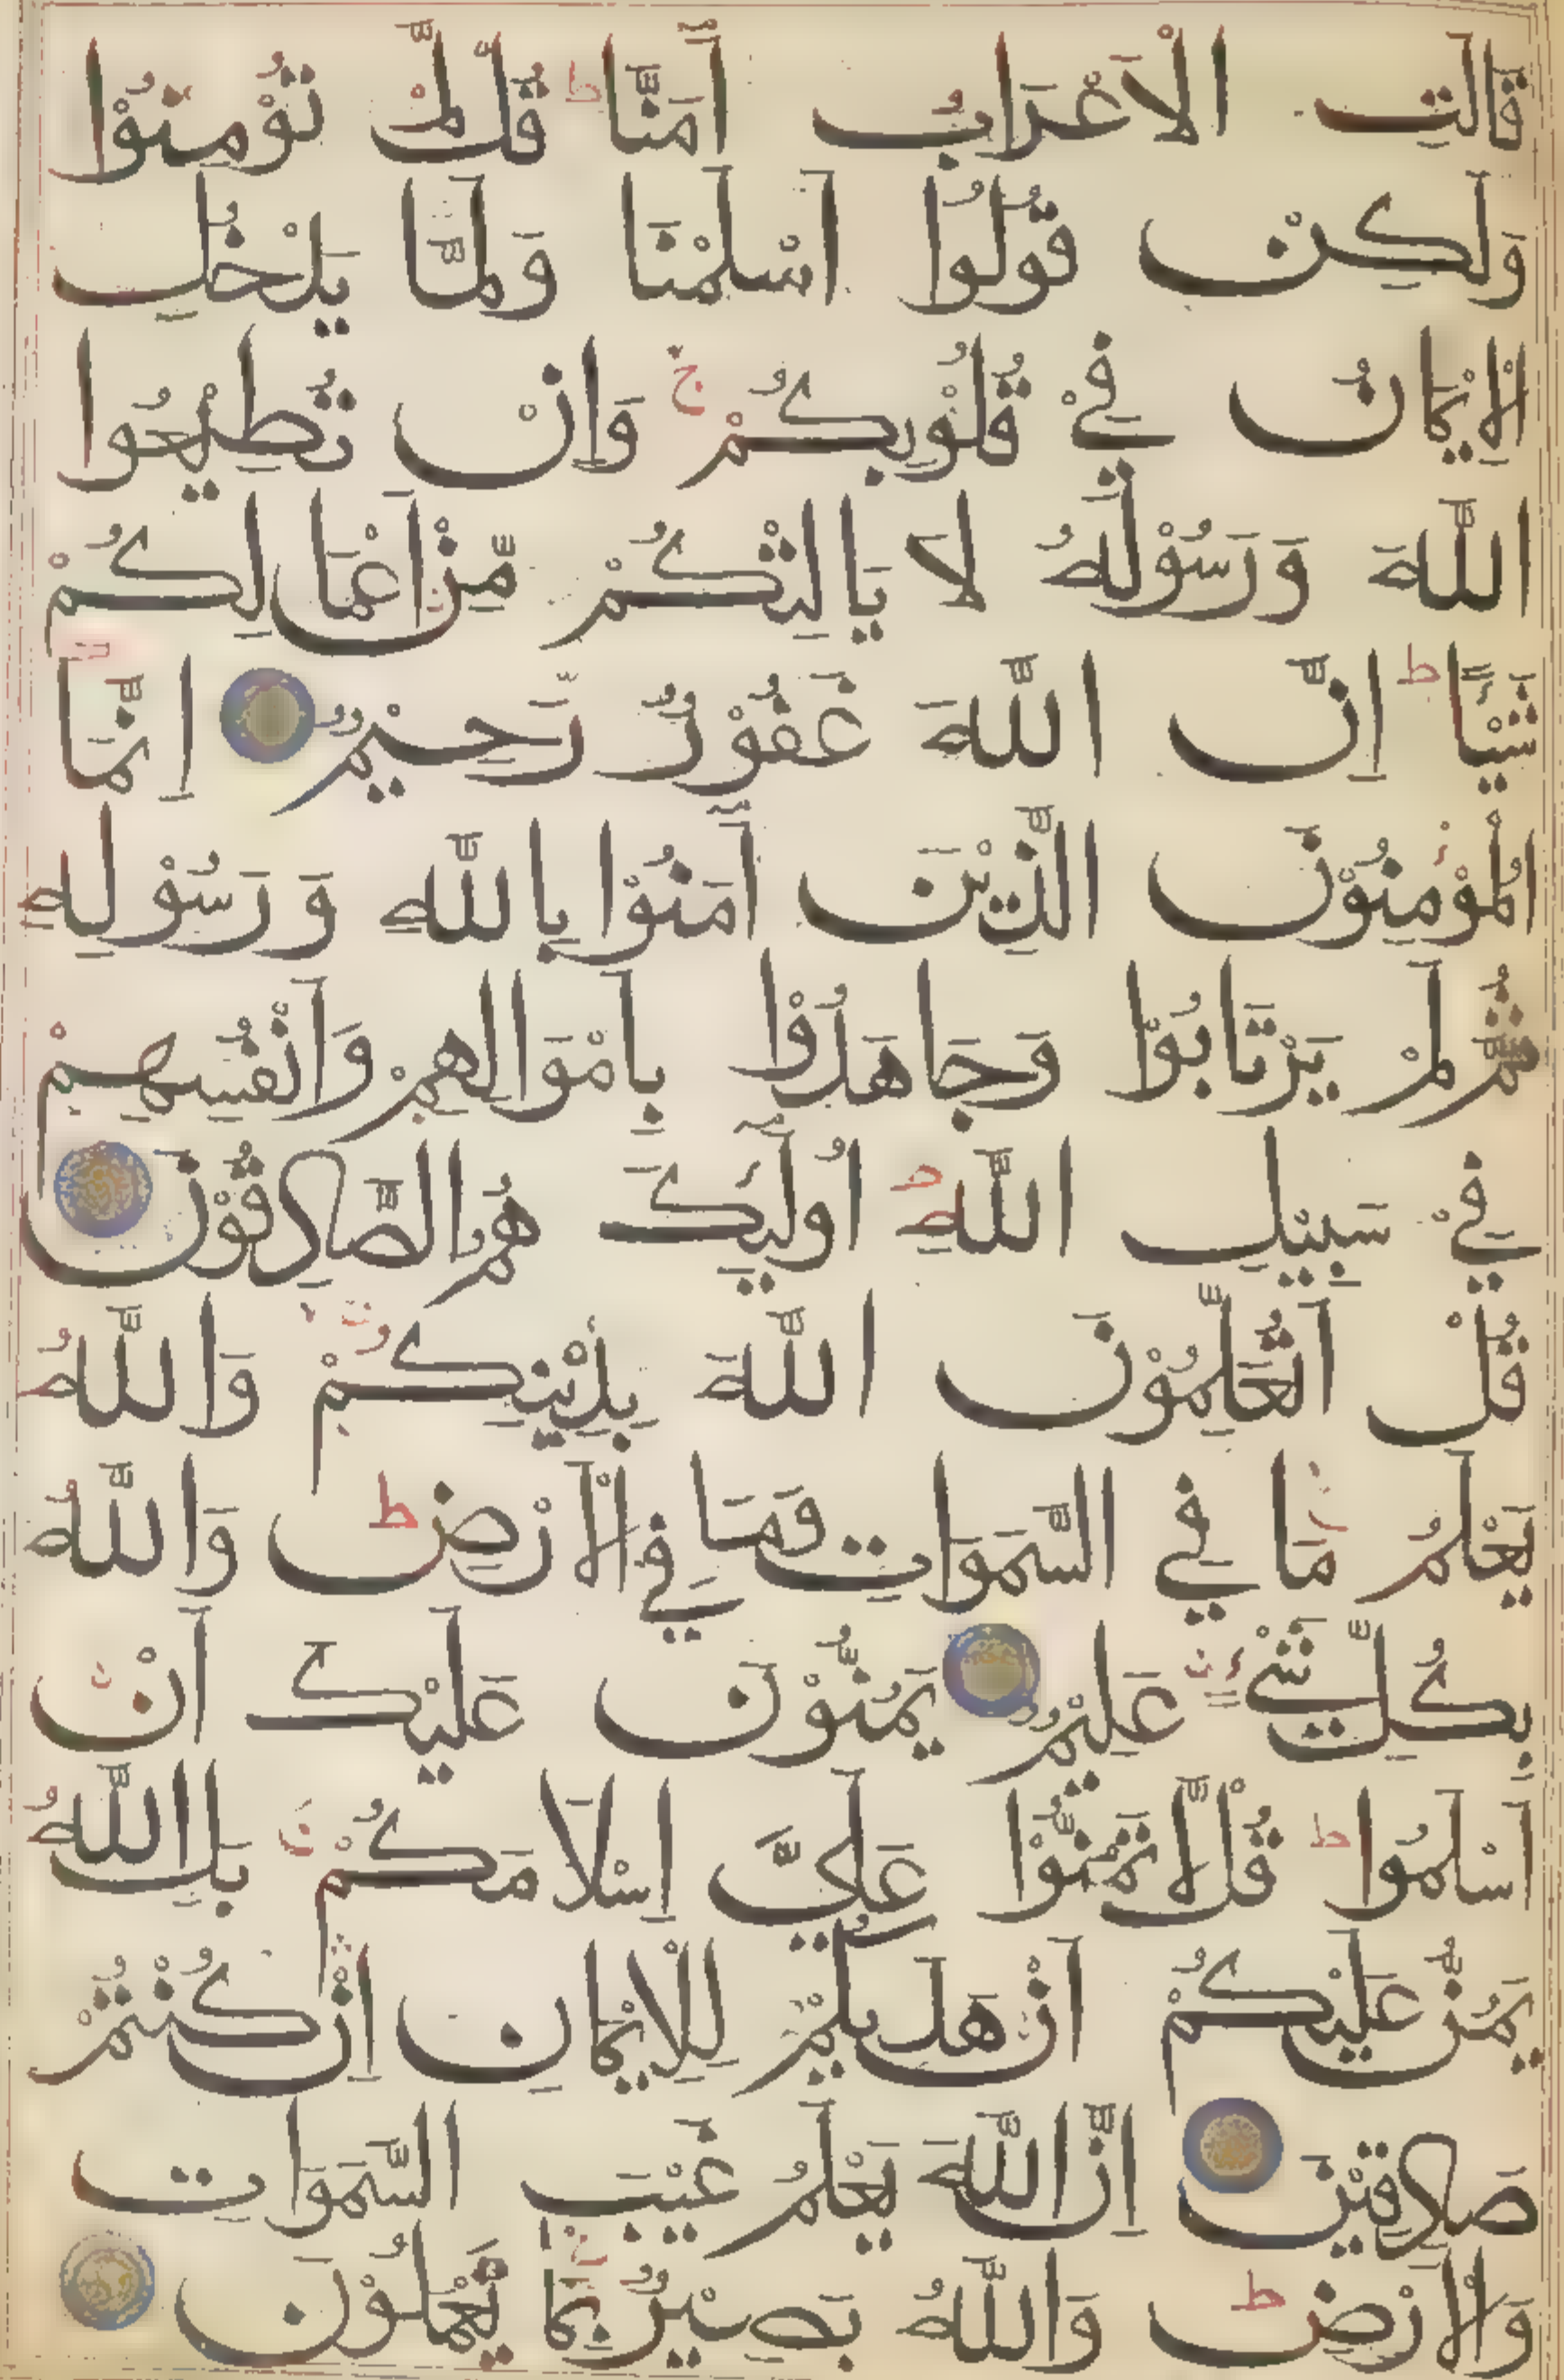 قَالَتِ الْاَعْرَابُ اٰمَنَّا ط قُلْ لَّمْ تُؤْمِنُوْا
وَلٰكِنْ قُوْلُوْا اَسْلَمْنَا وَلَمَّا يَدْخُلِ
الْاِيْمَانُ فِيْ قُلُوْبِكُمْ ج وَاِنْ تُطِيْعُوا
اللّٰهَ وَرَسُوْلَهُ لَا يَالِتْكُمْ مِّنْ اَعْمَالِكُمْ
شَيْـًٔا ط اِنَّ اللّٰهَ غَفُوْرٌ رَّحِيْمٌ اِنَّمَا
الْمُؤْمِنُوْنَ الَّذِيْنَ اٰمَنُوْا بِاللّٰهِ وَرَسُوْلِهٖ
ثُمَّ لَمْ يَرْتَابُوْا وَجَاهَدُوْا بِاَمْوَالِهِمْ وَاَنْفُسِهِمْ
فِيْ سَبِيْلِ اللّٰهِ ط اُولٰٓئِكَ هُمُ الصَّادِقُوْنَ
قُلْ اَتُعَلِّمُوْنَ اللّٰهَ بِدِيْنِكُمْ وَاللّٰهُ
يَعْلَمُ مَا فِي السَّمٰوَاتِ وَمَا فِي الْاَرْضِ ط وَاللّٰهُ
بِكُلِّ شَيْءٍ عَلِيْمٌ يَمُنُّوْنَ عَلَيْكَ اَنْ
اَسْلَمُوْا ط قُلْ لَّا تَمُنُّوْا عَلَيَّ اِسْلَامَكُمْ بَلِ اللّٰهُ
يَمُنُّ عَلَيْكُمْ اَنْ هَدٰىكُمْ لِلْاِيْمَانِ اِنْ كُنْتُمْ
صَادِقِيْنَ اِنَّ اللّٰهَ يَعْلَمُ غَيْبَ السَّمٰوَاتِ
وَالْاَرْضِ ط وَاللّٰهُ بَصِيْرٌ بِمَا يَعْمَلُوْنَ